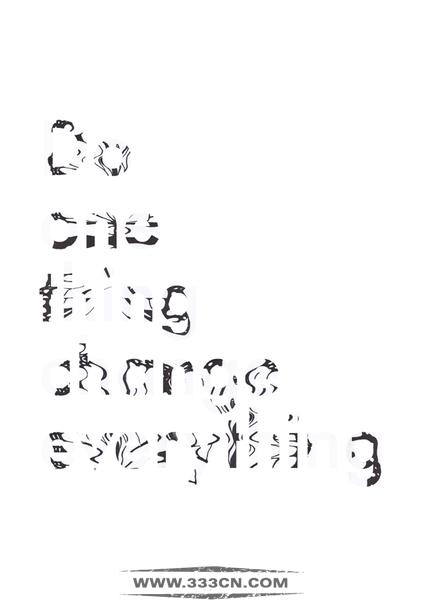 Do
one
thing
change
everything
WWW.333CN.COM